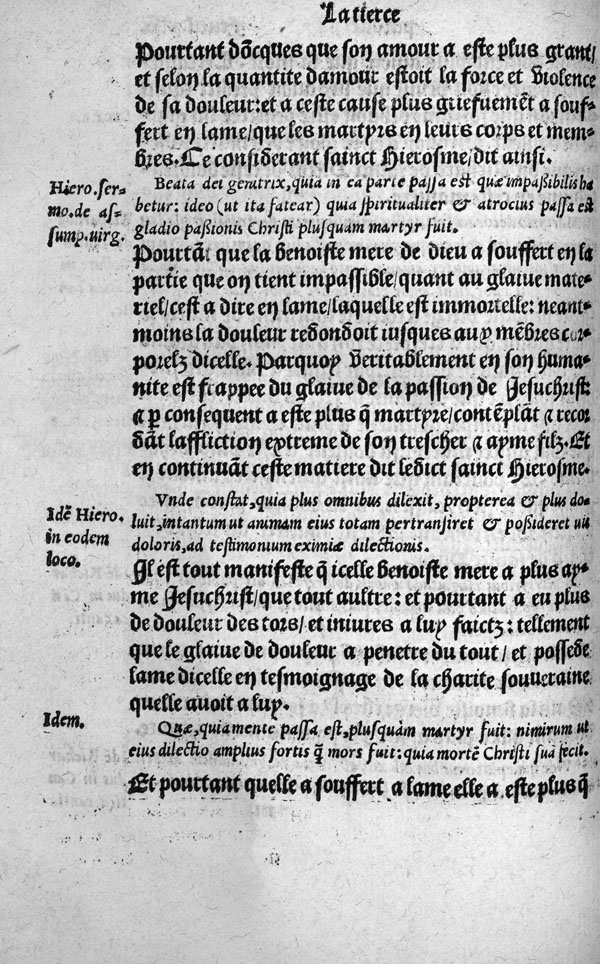 La tierce
Pourtant dõcques que son amour a este plus grant/
et selon la quantite damour estoit la force et violence
de sa douleur: et a ceste cause plus griefuemẽt a souf-
fert en lame/que les martyrs en leurs corps et mem-
bres. Ce considerant sainct Hierosme/dit ainsi.
Hiero.ser-
mo.de as-
sump.uirg.
Beata dei genitrix, quia in ea parte passa est quæ impaßibilis ha
betur: ideo (ut ita fatear) quia spiritualiter & atrocius passa est
gladio paßionis Christi plusquam martyr fuit.
Pourtãt que la benoiste mere de dieu a souffert en la
partie que on tient impassible/quant au glaiue mate-
riel/cest a dire en lame/laquelle est immortelle: neant-
moins la douleur redondoit iusques aux mẽbres cor-
porelz dicelle. Parquoy veritablement en son huma-
nite est frappee du glaiue de la passion de Jesuchrist
⁊ p̱ consequent a este plus q̃ martyre/contẽplãt ⁊ recor
dãt laffliction extreme de son trescher ⁊ ayme filz. Et
en continuãt ceste matiere dit ledict sainct Hierosme.
Idẽ Hiero.
in eodem
loco.
Vnde constat, quia plus omnibus dilexit, propterea & plus do-
luit, intantum ut animam eius totam pertransiret & poßideret uis
doloris, ad testimonium eximiæ dilectionis.
Il est tout manifeste q̃ icelle benoiste mere a plus ay-
me Jesuchrist/que tout aultre: et pourtant a eu plus
de douleur des tors/et iniures a luy faictz: tellement
que le glaiue de douleur a penetre du tout/et possede
lame dicelle en tesmoignage de la charite souueraine
quelle auoit a luy.
Idem.
Quæ, quia mente passa est, plusquàm martyr fuit: nimirum ut
eius dilectio amplius fortis q̃ mors fuit: quia mortẽ Christi suã fecit.
Et pourtant quelle a souffert a lame elle a este plus q̃